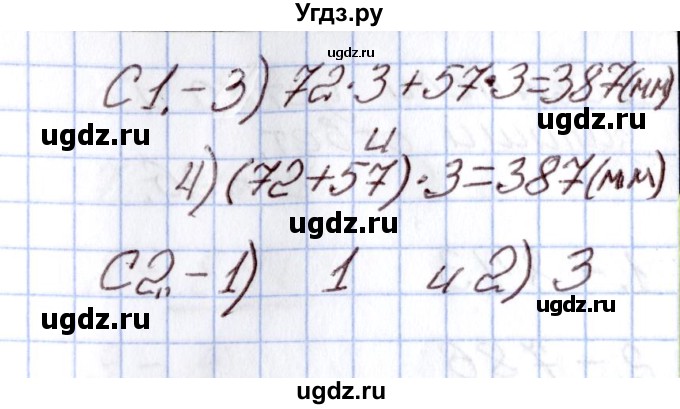 Угдз.ру
ugdz.ru
С1.-3) 72·3+57·3=387(мм)
ugdz.ru ugdz.ru
и
4) (72+57)·3=387(мм)
ugdz.ru ugdz.ru
ugdz.ru
С2.-1) 1 и 2) 3
ugdz.ru ugdz.ru
ugdz.ru
ugdz.ru